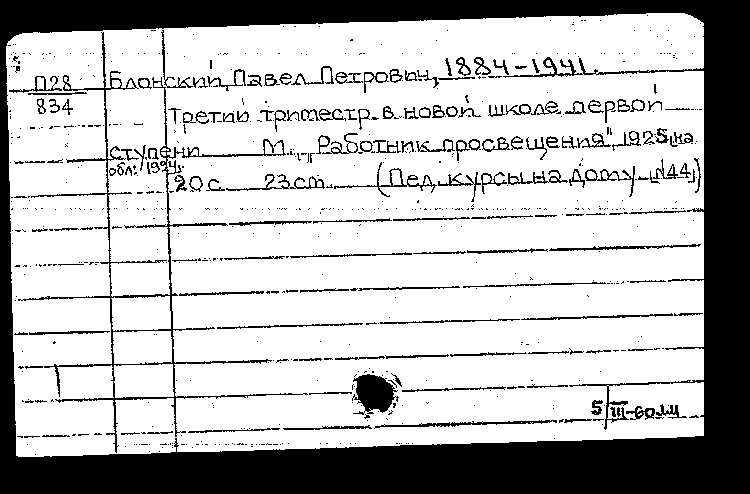 П28
834
Блонский, Павел Петрович, 1884-1941.
Третий триместр в новой школе первой
ступени М., „Работник просвещения", 1925, [на
обл.: 1924].
20 с. 23 см. (Пед. курсы на дому [N44])
5/III-60